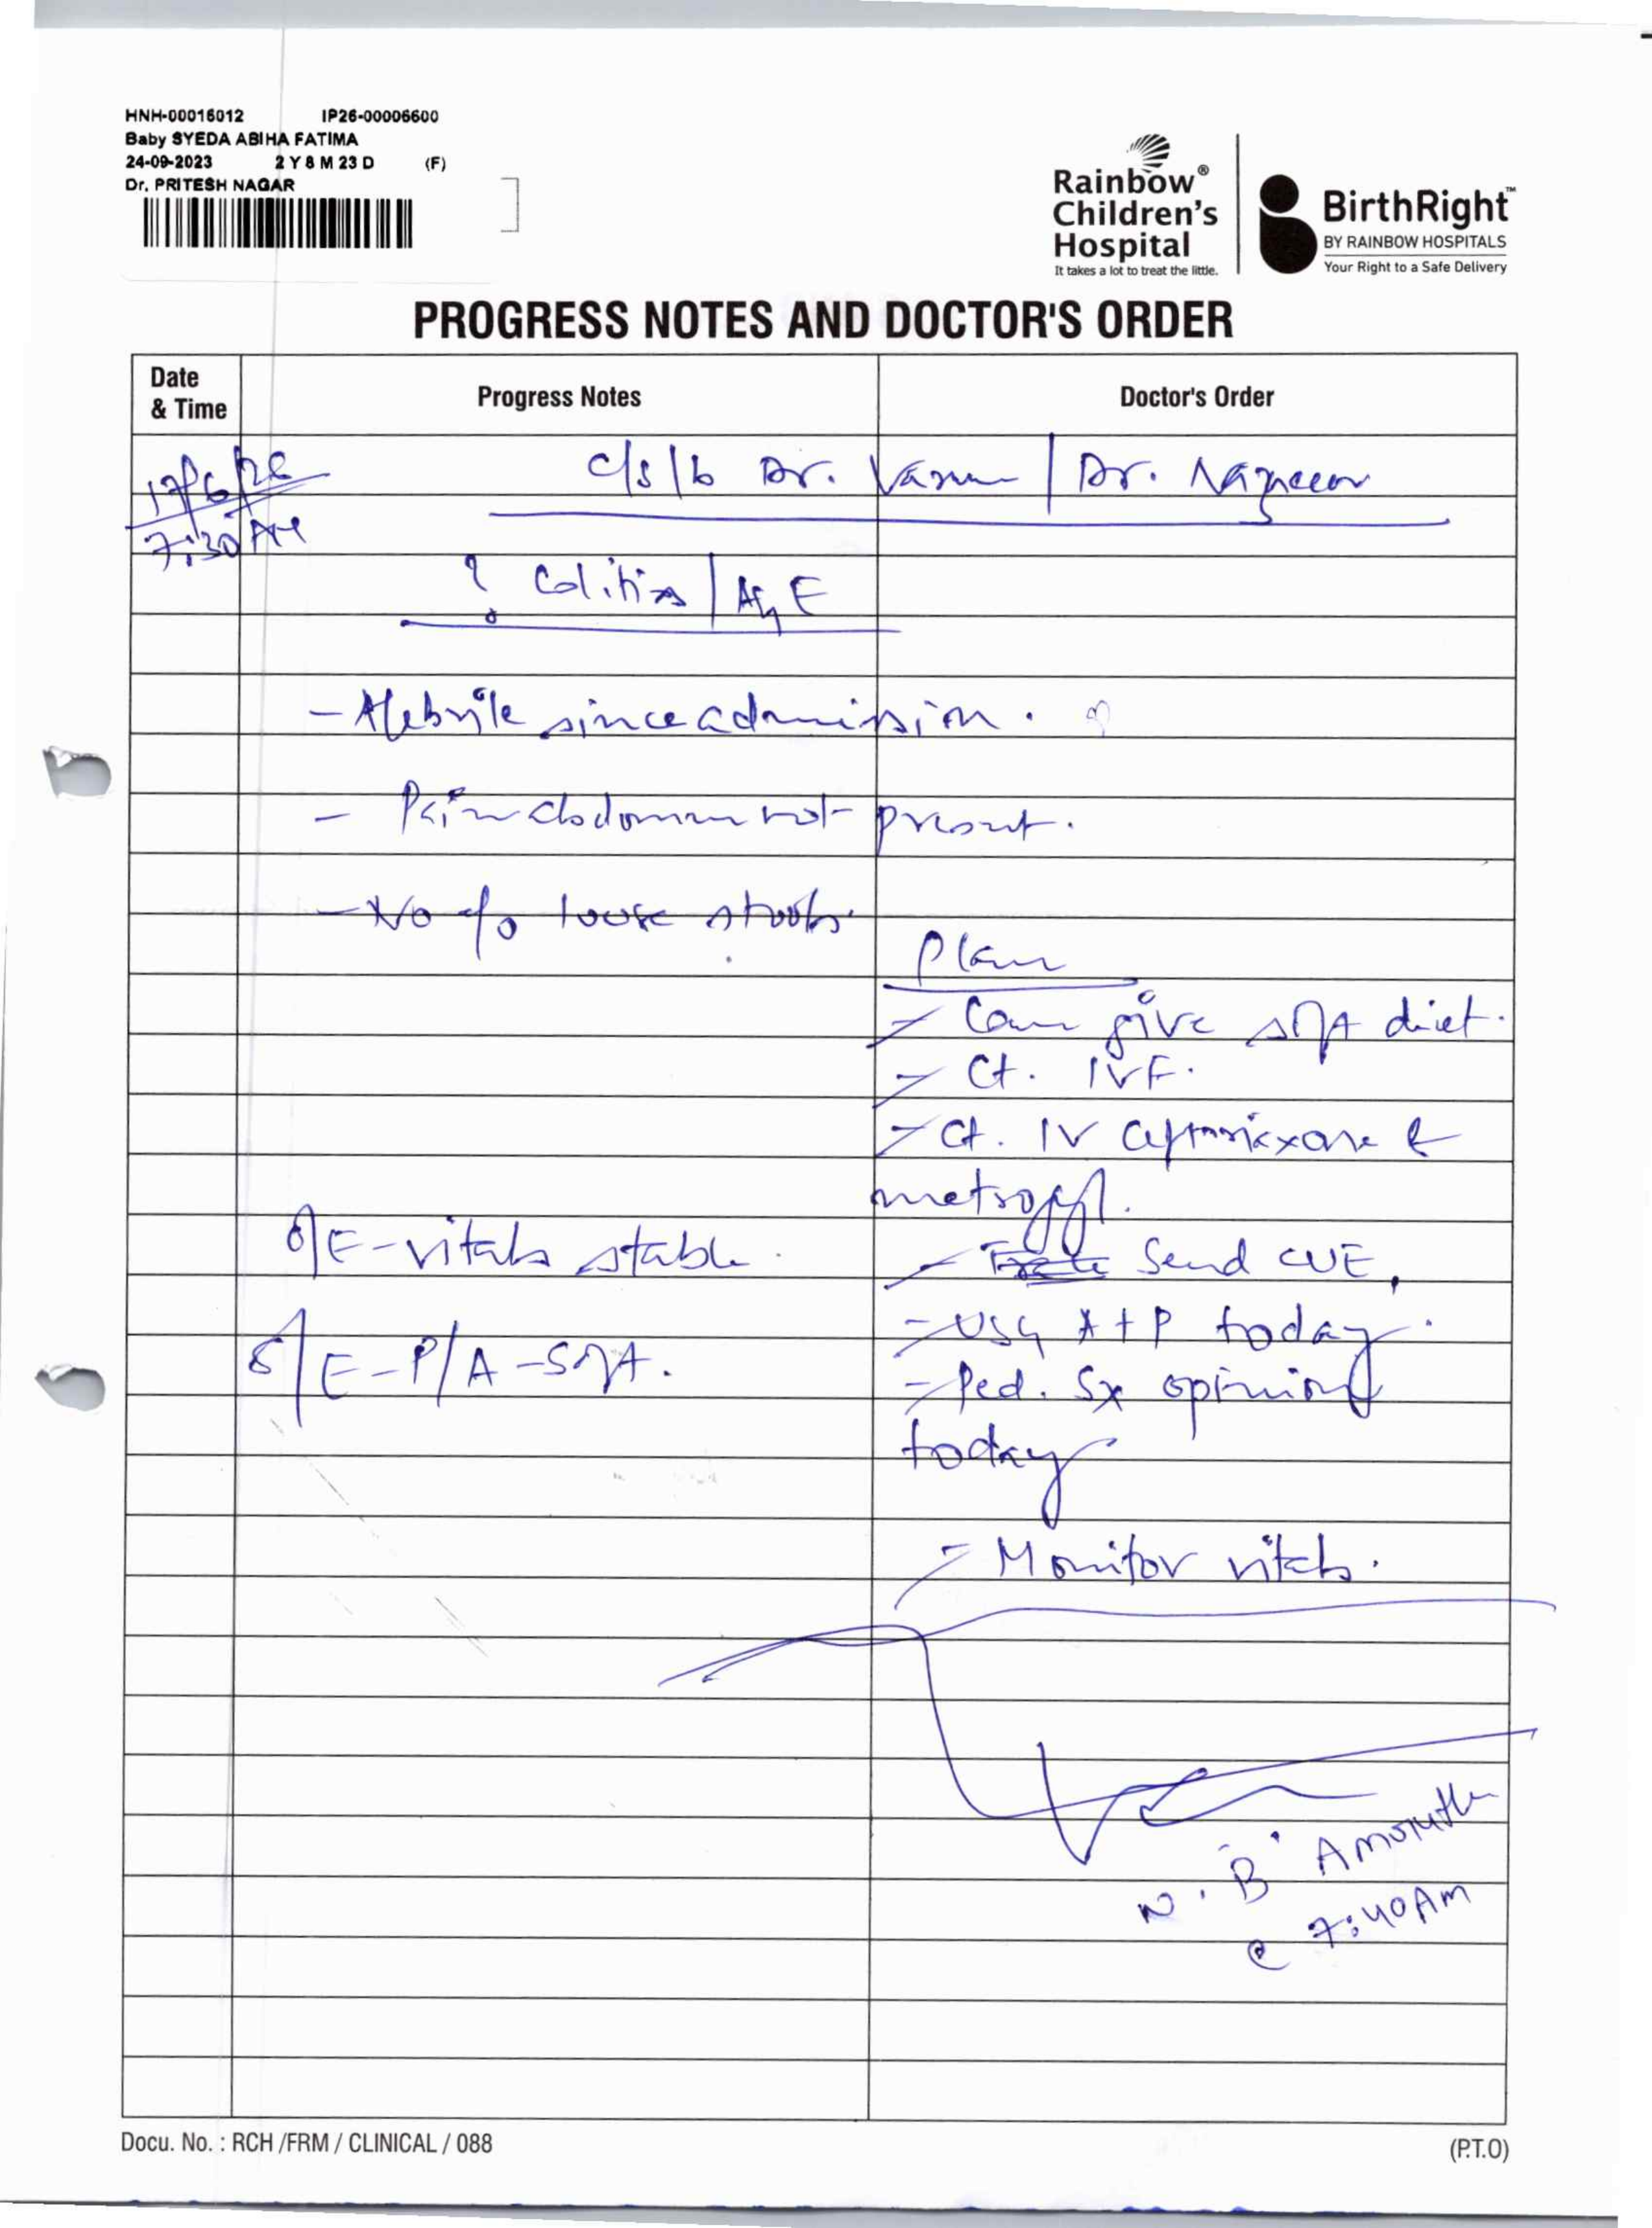 HNH-00016012 IP26-00006600
Baby SYEDA ABIHA FATIMA
24-09-2023 2 Y 8 M 23 D (F)
Dr. PRITESH NAGAR
Rainbow®
Children's
Hospital
It takes a lot to treat the little.
BirthRight™
BY RAINBOW HOSPITALS
Your Right to a Safe Delivery
PROGRESS NOTES AND DOCTOR'S ORDER
Date & Time Progress Notes Doctor's Order
17/6/26 c/s/b Dr. Varun / Dr. Nazneen
7:30 AM
? Colitis / AGE
- Afebrile since admission.
- Pain abdomen not present.
- No c/o loose stools.
Plan
- Can give soft diet.
- Ct. IVF.
- Ct. IV Ceftriaxone &
metrogyl.
O/E - vitals stable.
- Send CUE,
- USG A + P today.
S/E - P/A - soft.
- Ped. Sx opinion
today
- Monitor vitals.
N. B. Amrutha
@ 7:40 Am
Docu. No. : RCH /FRM / CLINICAL / 088 (P.T.O)